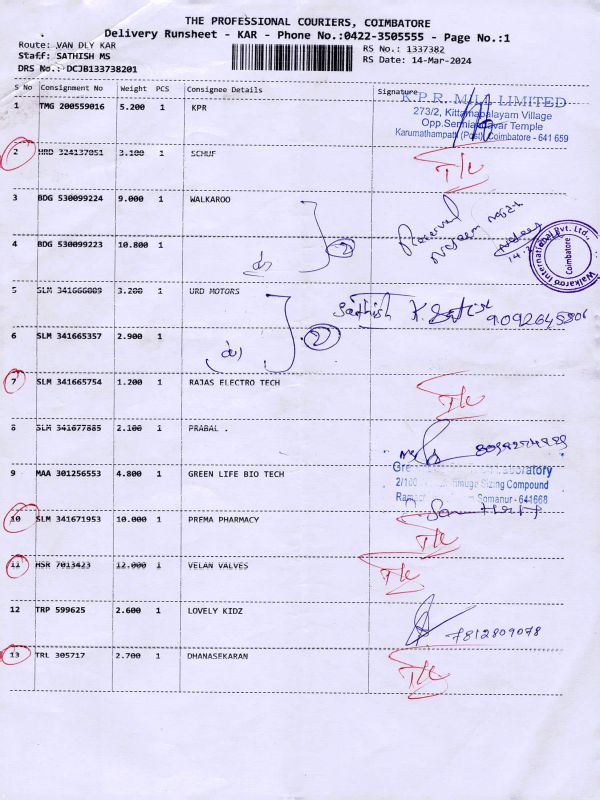 THE PROFESSIONAL COURIERS, COIMBATORE
Delivery Runsheet - KAR - Phone No.:0422-3505555 - Page No.:1
Route: VAN DLY KAR RS No.: 1337382
Staff: SATHISH MS RS Date: 14-Mar-2024
DRS No.: DCJB133738201
S No Consignment No Weight PCS Consignee Details Signature
1 TMG 200559016 5.200 1 KPR
K.P.R. MILL LIMITED
273/2, Kittampalayam Village
Opp.Senniandavar Temple
Karumathampatti (Post), Coimbatore - 641 659
2 URD 324137051 3.100 1 SCHUF T/C
3 BDG 530099224 9.000 1 WALKAROO
Received
4 BDG 530099223 10.800 1 2
Walkaroo International Pvt. Ltd.,
Coimbatore
5 SLM 341666009 3.200 1 URD MOTORS
Sathish K. 9092645806
6 SLM 341665357 2.900 1 2
7 SLM 341665754 1.200 1 RAJAS ELECTRO TECH T/C
8 SLM 341677885 2.100 1 PRABAL .
9 MAA 301256553 4.800 1 GREEN LIFE BIO TECH
Laboratory
Sizing Compound
Somanur - 641668
10 SLM 341671953 10.000 1 PREMA PHARMACY T/C
11 HSR 7013423 12.000 1 VELAN VALVES T/C
12 TRP 599625 2.600 1 LOVELY KIDZ 7812809078
13 TRL 305717 2.700 1 DHANASEKARAN T/C